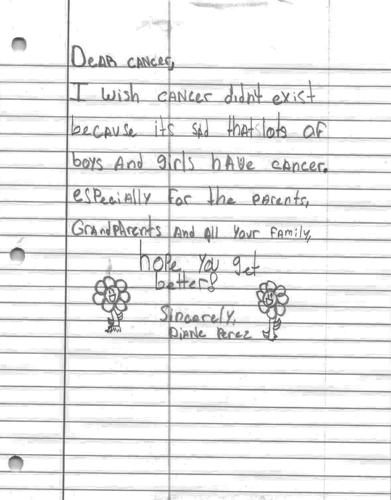 DeAR CANCER,
I wish CANCER didn't exist
because its sad that lots of
boys And girls hAve cancer.
esPecially for the PArents,
GrandPArents And All Your Family,
hope you get
better!
Sincerely,
DiANe Perez